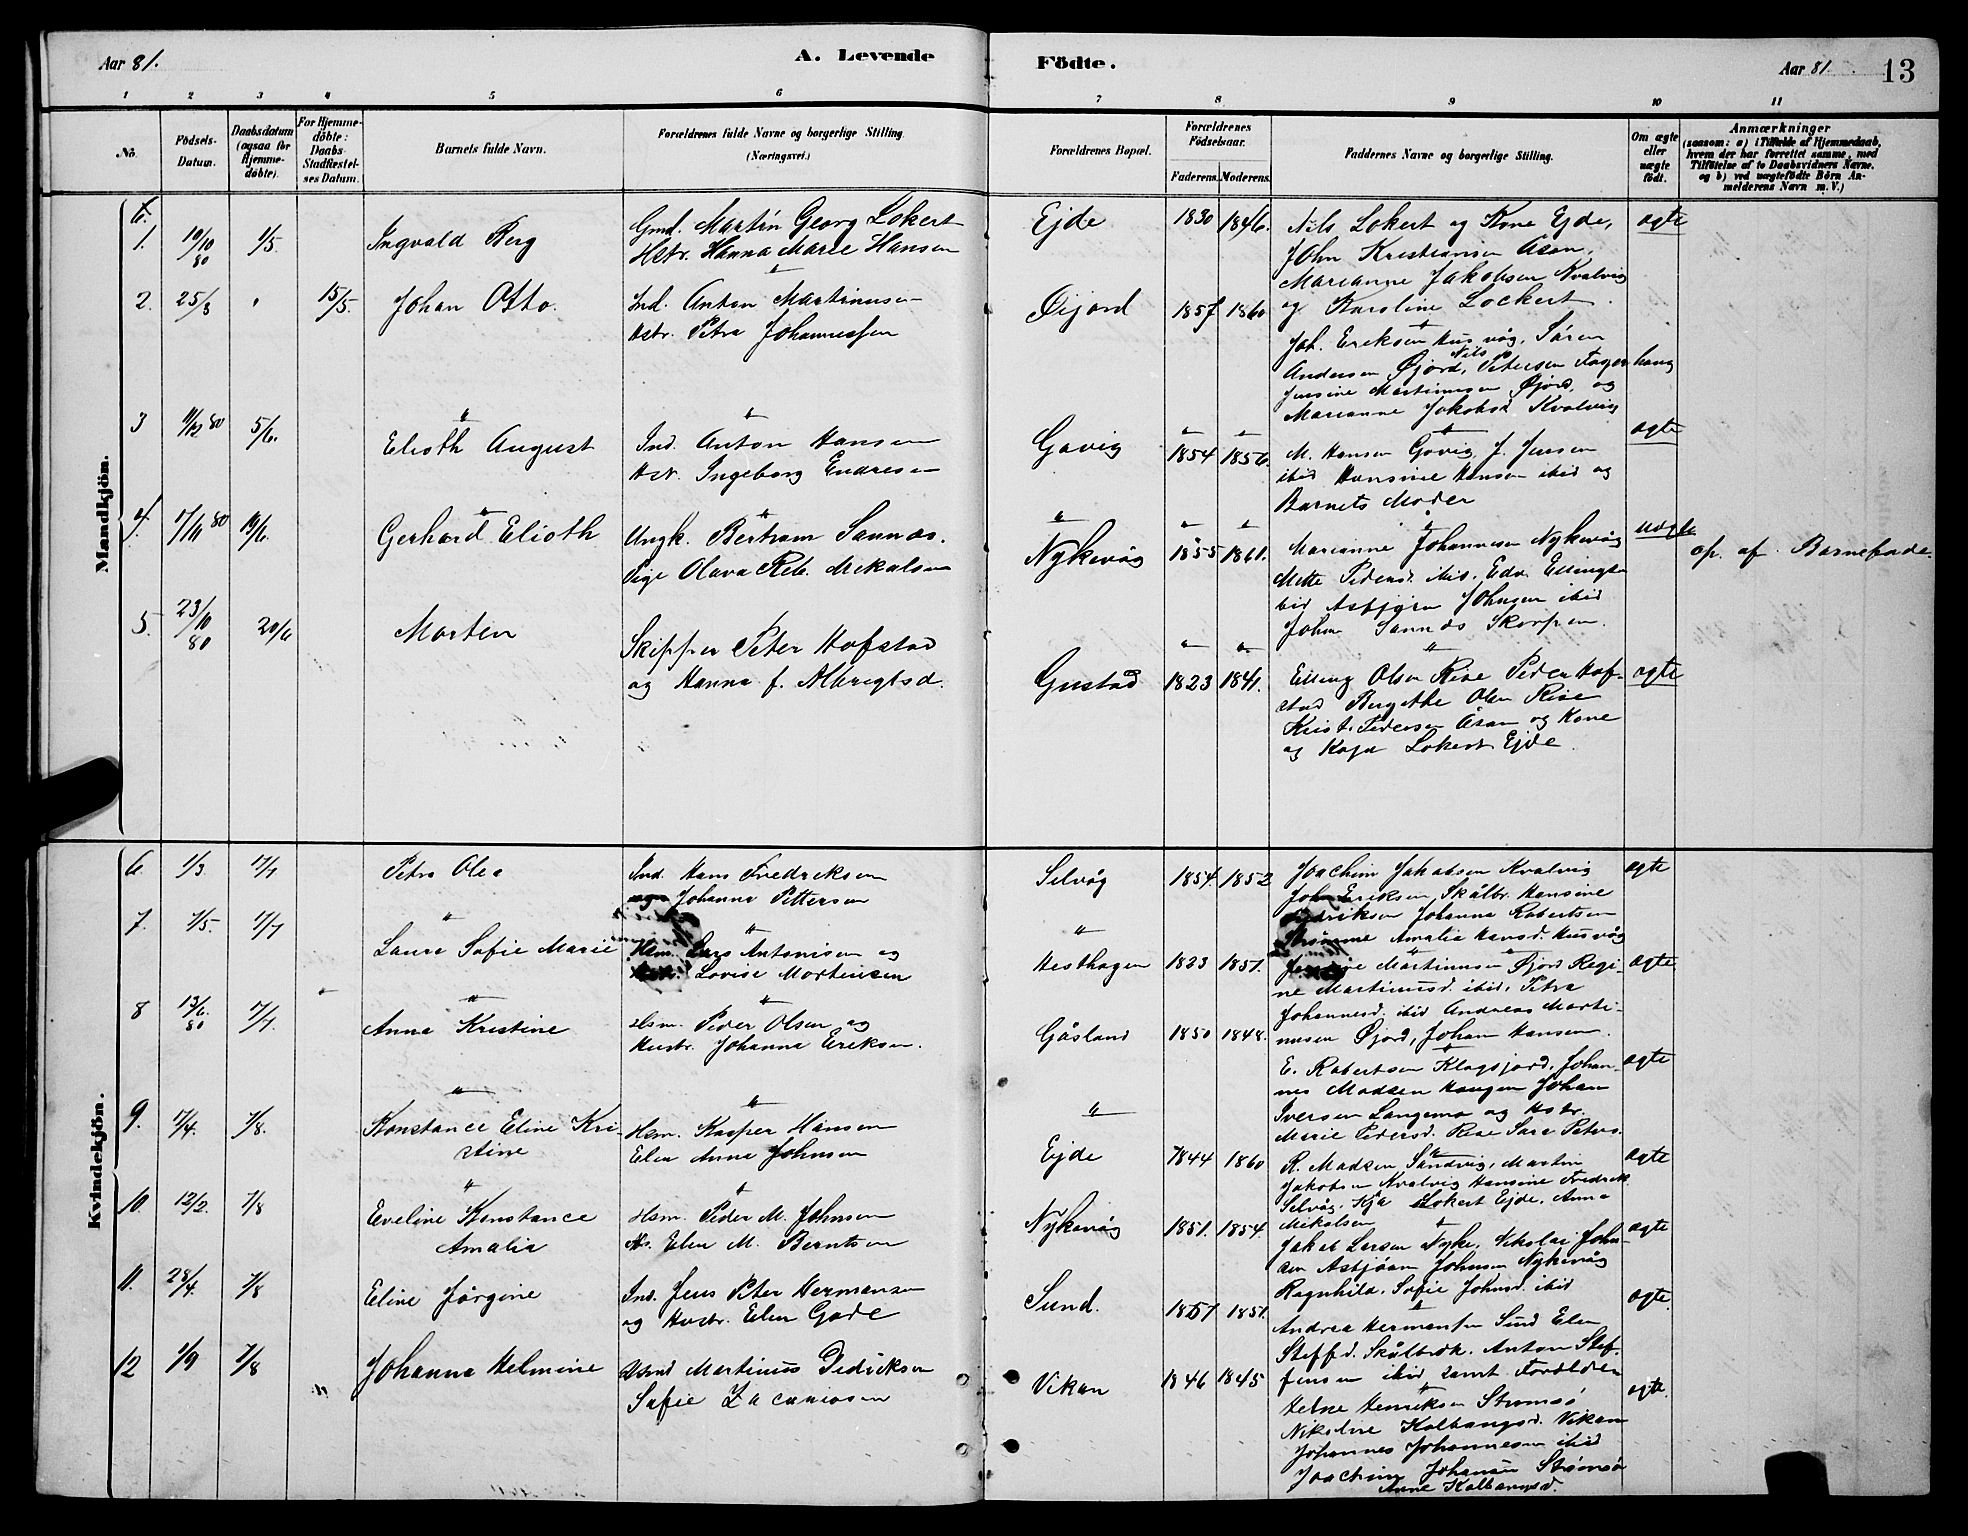 Aar 81.
A. Levende Födte.
Aar 81.
13
1 2 3 4 5 6 7 8 9 10 11
No.
Födsels-Datum.
Daabsdatum (ogsaa for Hjemme-döbte).
For Hjemme-döbte: Daabs-Stadfæstel-ses Datum.
Barnets fulde Navn.
Forældrenes fulde Navne og borgerlige Stilling. (Næringsvei.)
Forældrenes Bopæl.
Forældrenes Födselsaar.
Faderens. Moderens.
Faddernes Navne og borgerlige Stilling.
Om ægte eller uægte födt.
Anmærkninger
(saasom: a) i Tilfælde af Hjemmedaab, hvem der har forrettet samme, med Tilföielse af to Daabsvidners Navne. og b) ved uægtefödte Börn An-melderens Navn m. V.)
Mandkjön.
1. 10/10 80 1/5 Ingvald Berg
Gmd. Martin Georg Lokert
Hstr. Hanna Marie Hansen
Ejde 1830 1846.
Nils Lokert og Kone Ejde,
John Kristiansen Åsen,
Marianne Jakobsen Kvalvig
og Karoline Lockert
ægte
2. 25/3 15/5. Johan Otto.
Ind. Anton Martinusen
Hstr. Petra Johannessen
Øijord 1857 1860
Joh. Eriksen Husvåg, Sören
Andersen Øjord, Nils Petersen Fager
haug
Jensine Martinusen Øjord, og
Marianne Jakobsd Kvalvig
ægte
3 11/12 80 5/6. Elioth August
Ind. Anton Hansen
Hstr. Ingeborg Endresen
Gavig 1854 1856.
M. Hansen Gavig J. Jensen
ibid Hansine Hansen ibid og
Barnets Moder
4. 17/11 80 19/6. Gerhard Elioth
Ungk. Bertram Sannæs.
Pige Olava Reb. Mikalsen
Nykevåg 1855 1861.
Marianne Johannesen Nykevåg
Mette Pedersd. ibid, Edv. Ellingse
bid Asbjørn Johnsen ibid
Johan Sannæs Skorpen.
uægte
op. af Barnefade.
5. 23/10 80 20/6 Morten
Skipper Peter Hofstad
og Hanna f. Albrigtsd.
Gustad 1823 1841.
Elling Olsen Rise Peder Hof-
stad Bergithe Olsen Rise
Krist. Pedersen Åsan og Kone
og Kaja Lokert Ejde.
ægte
Kvindekjön.
6. 1/3 17/7 Petra Olea
Ind. Hans Fredriksen
og Johanna Pettersen
Selvåg 1854. 1852
Joachim Jakobsen Kvalvig
John Eriksen, Skålbr. Hansine
Fredriksen Johanna Robertsen
Strömme Amalia Hansd. Husvåg
ægte
7. 1/5. 17/7 Laura Sofie Marie
Hsm. Lars Antonisen og
Lovise Mortensen
Hesthagen 1823 1851.
Jensine Martinusen Øjord Regi-
ne Martinusd. ibid, Petra
Johannesd. ibid Andreas Marti-
nusen Øjord, Johan Hansen.
ægte
8 13/6. 80 17/7 Anna Kristine
Hsm. Peder Olsen og
Hustr. Johanna Eriksen.
Gåsland 1850 1848.
E. Robertsen Klogsjord, Johan-
nes Madsen Haugen Johan
Iversen Langemo og Hstr.
Marie Pedersd. Rise Sara Peters.
ægte
9. 17/4. 7/8. Konstance Eline Kri-
stine
Hsm. Kasper Hansen
Elen Anna Johnsen
Ejde 1844 1860
R. Madsen Sandvig, Martin
Jakobsen Kvalvig Hansine Fredrik.
Selvåg, Kja Lokert Ejde, Anna
Mikalsen
ægte
10. 12/2. 7/8 Eveline Konstance
Amalia
Hsm. Peder M. Johnsen
Hs. Elen M. Berntsen
Nykevåg 1851. 1854.
Jakob Larsen Nyke, Nikolai John-
sen Asbjöan Johnsen Nykevåg
Ragnhild. Sofie Johnsd. ibid
ægte
11. 28/4. 7/8 Eline Jörgine
Ind. Jens Peter Hermansen
og Hustr. Elen Gade
Sund. 1857 1851.
Andrea Hermansen Sund Elen
Steffd. Skålbræk. Anton Stef-
fensen ibid samt Forældren
ægte.
12 1/9 7/8 Johanna Helmine
Martinus Didriksen
Sofie Zacariasen
Vikan 1846 1845
Henriksen Strömsö
Nikoline Kolbangsd. Vikan
Johannes Johannesen ibid
Joachim Johansen Strömsö
Anne Kolbangsd.
ægte.